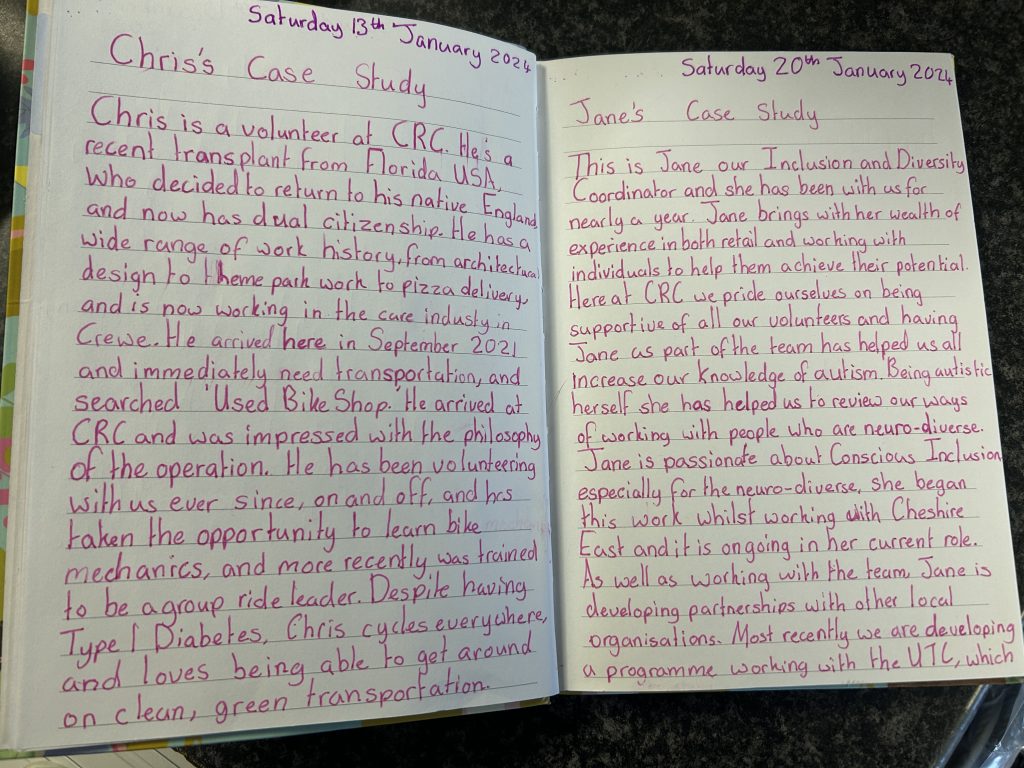 Saturday 13th January 2024
Chris's Case Study
Chris is a volunteer at CRC. He's a
recent transplant from Florida USA,
who decided to return to his native England
and now has dual citizenship. He has a
wide range of work history, from architectural
design to theme park work to pizza delivery,
and is now working in the care industy in
Crewe. He arrived here in September 2021
and immediately need transportation, and
searched 'Used Bike Shop.' He arrived at
CRC and was impressed with the philosophy
of the operation. He has been volunteering
with us ever since, on and off, and has
taken the opportunity to learn bike
mechanics, and more recently was trained
to be a group ride leader. Despite having
Type 1 Diabetes, Chris cycles everywhere,
and loves being able to get around
on clean, green transportation.
Saturday 20th January 2024
Jane's Case Study
This is Jane our Inclusion and Diversity
Coordinator and she has been with us for
nearly a year. Jane brings with her wealth of
experience in both retail and working with
individuals to help them achieve their potential.
Here at CRC we pride ourselves on being
supportive of all our volunteers and having
Jane as part of the team has helped us all
increase our knowledge of autism. Being autistic
herself she has helped us to review our ways
of working with people who are neuro-diverse.
Jane is passionate about Conscious Inclusion
especially for the neuro-diverse, she began
this work whilst working with Cheshire
East and it is ongoing in her current role.
As well as working with the team Jane is
developing partnerships with other local
organisations. Most recently we are developing
a programme working with the UTC, which